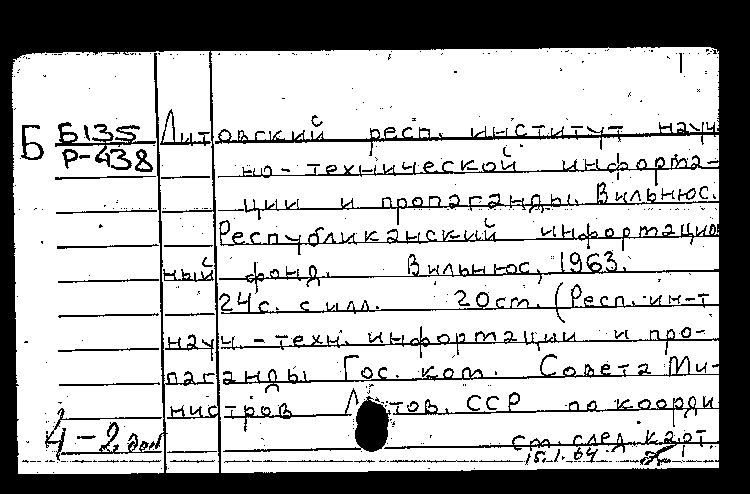 Б Б135 Литовский респ. институт науч
Р-438 но-технической информа-
ции и пропаганды. Вильнюс.
Республиканский информацион
ный фонд. Вильнюс, 1963.
24с. с илл. 20см. (Респ. ин-т
науч.-техн. информации и про-
паганды Гос. ком. Совета Ми-
нистров Литов. ССР по коорди
4-2 доп см. след. карт.
15.1.64